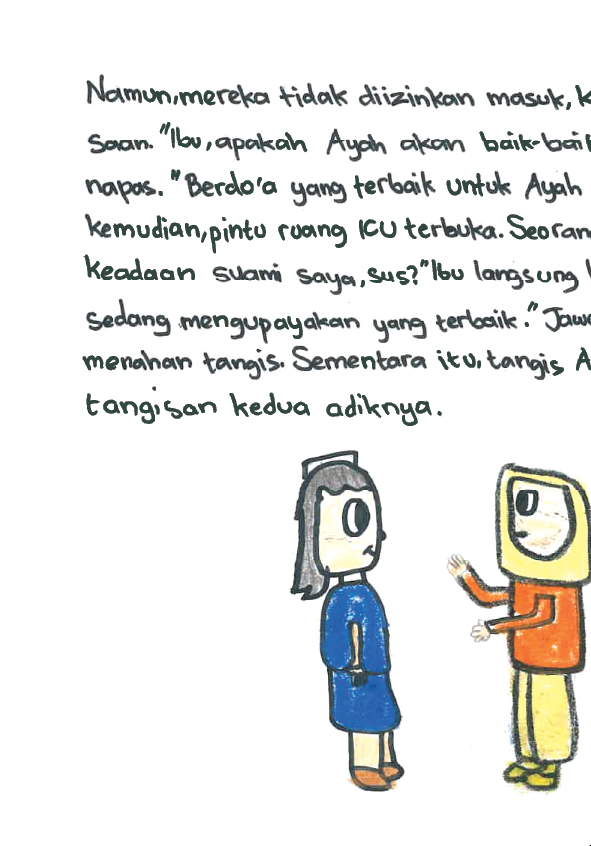 Namun, mereka tidak diizinkan masuk, k
saan. "Ibu, apakah Ayah akan baik-baik
napas. "Berdo'a yang terbaik untuk Ayah
kemudian, pintu ruang ICU terbuka. Seoran
keadaan suami saya, sus?" Ibu langsung
sedang mengupayakan yang terbaik." Jawa
menahan tangis. Sementara itu, tangis A
tangisan kedua adiknya.